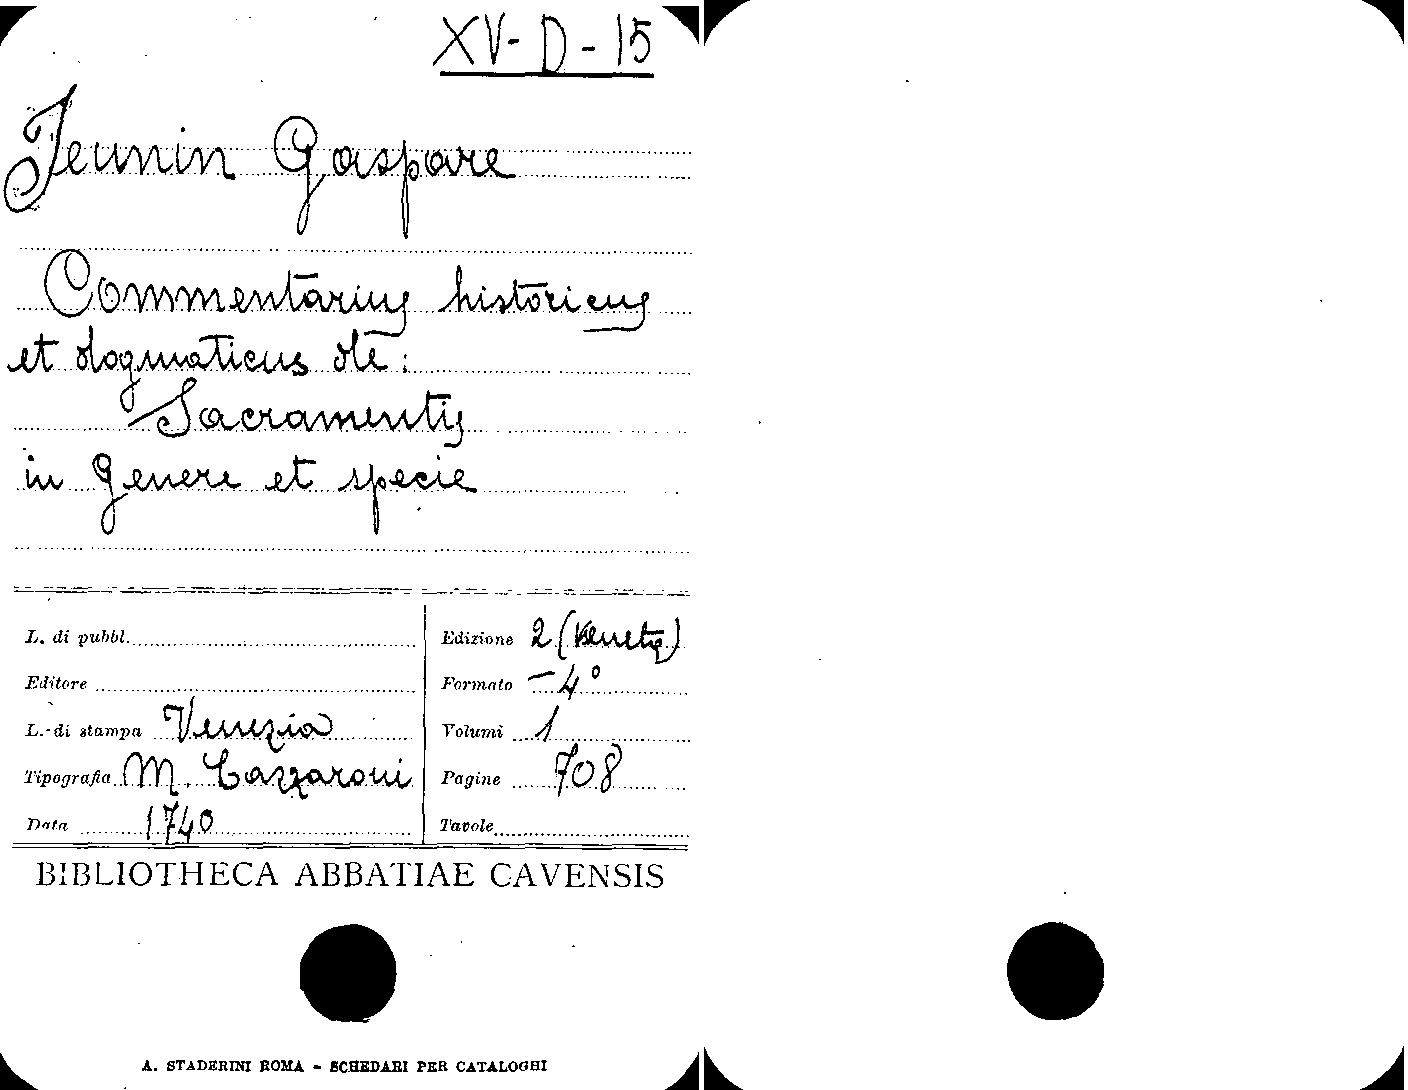 XV-D-15
Jeunin Gaspare
Commentarius historicus
et dogmaticus de:
Sacramentis
in genere et specie
L. di pubbl.
Editore
L. di stampa Venezia
Tipografia M. Cazzaroni
Data 1740
Edizione 2 (Veneta)
Formato - 4°
Volumi 1
Pagine 708
Tavole
BIBLIOTHECA ABBATIAE CAVENSIS
A. STADERINI ROMA - SCHEDARI PER CATALOGHI